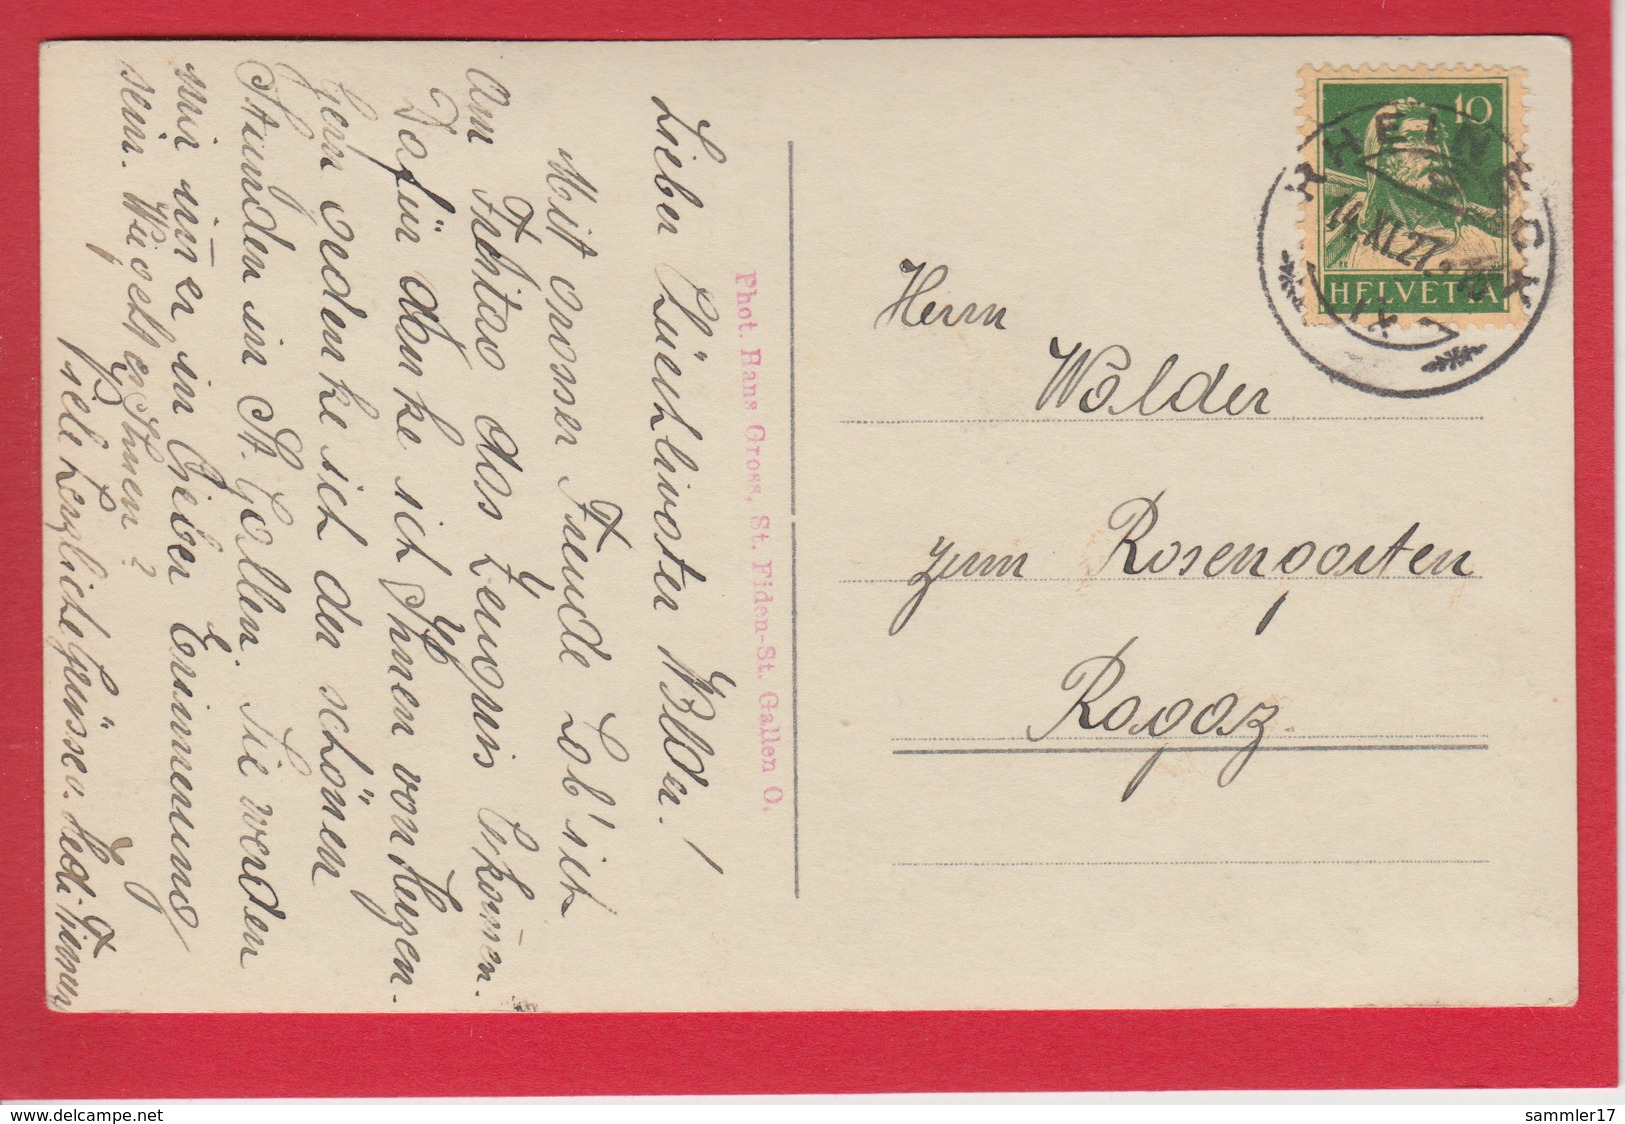 Lieber Zuchtvater Wolder!
Mit grosser Freude hab' ich
am Freitag das Zeugnis bekom̄en.
Dafür danke ich Ihnen von Herzen.
Gern gedenke ich der schönen
Stunden in St. Gallen. Sie werden
mir im̄er in lieber Erinnerung
sein. Wie geht es Ihnen?
Viele herzliche Grüsse v. Hedi
Phot. Hans Gross, St. Fiden-St. Gallen O.
10
HELVETIA
RHEINECK
14.XI.27
Herrn
Wolder
zum Rosengarten
Ragaz.
delcampe.net
sammler17